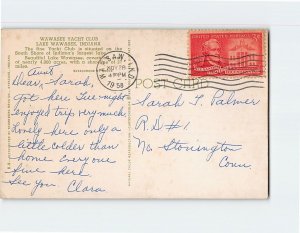 WAWASEE YACHT CLUB
LAKE WAWASEE, INDIANA
The fine Yacht Club is situated on the
South Shore of Indiana's largest lake.
Beautiful Lake Wawasee,
of nearly
miles.
WARSAW, IND.
NOV 28
PM
1958
UNITED STATES POSTAGE
3¢
POST CARD
Aunt
Dear, Sarah,
Got here Tue-night
enjoyed trip very much
Lovely here only a
little colder than
home Everyone
fine here
See you. Clara
Sarah T. Palmer
R.D #1
No. Stonington
Conn.